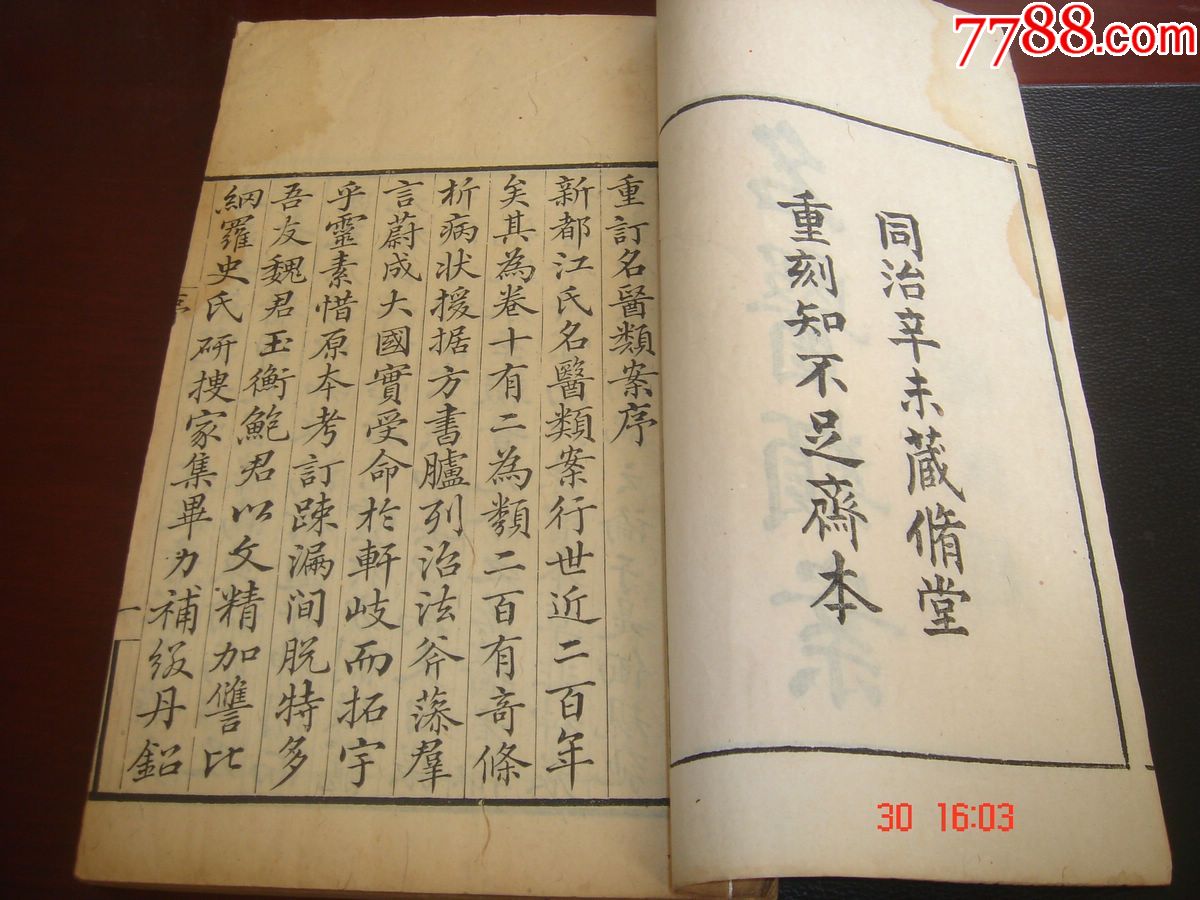 7788.com
同治辛未藏脩堂
重刻知不足齋本
重訂名醫類案序
新都江氏名醫類案行世近二百年
矣其為卷十有二為類二百有奇條
析病狀援据方書臚列治法斧藻羣
言蔚成大國實受命於軒岐而拓宇
乎靈素惜原本考訂踈漏间脱特多
吾友魏君玉衡鮑君以文精加讐比
網羅史氏研搜家集畢力補綴丹鉛
一
30 16:03